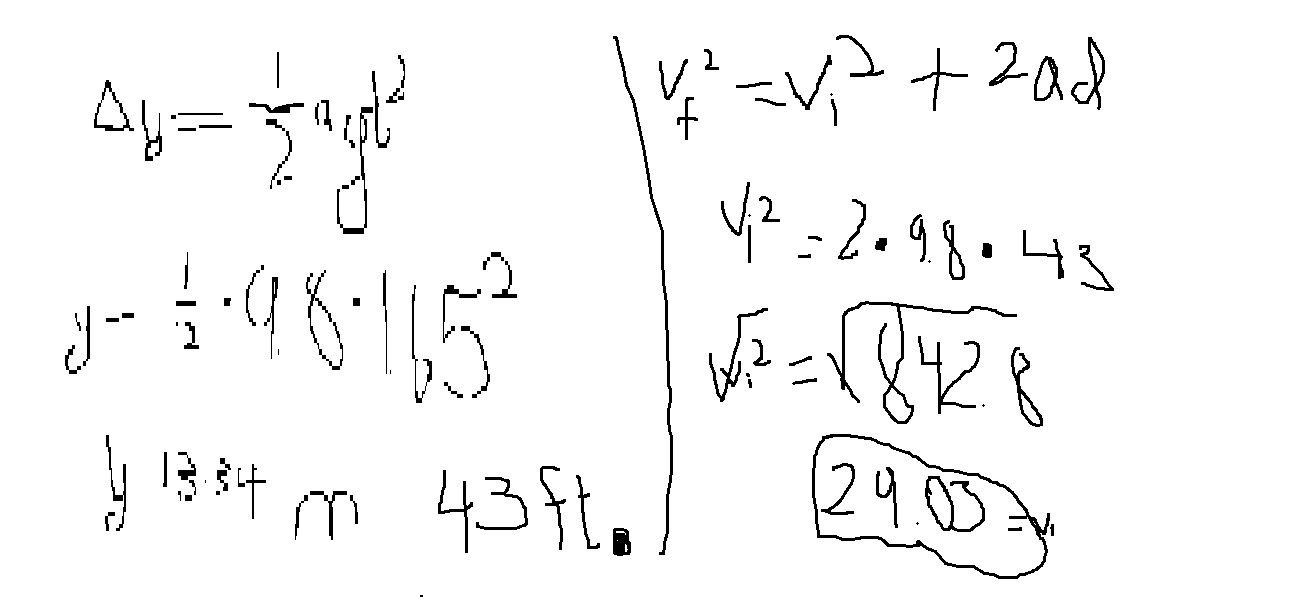 Δy = 1/2 a_g t²
y = 1/2 · 9.8 · 1.65²
y 13.34 m 43 ft.
v_f² = v_i² + 2ad
v_i² = 2 · 9.8 · 43
√v_i² = √842.8
29.03 = v_i